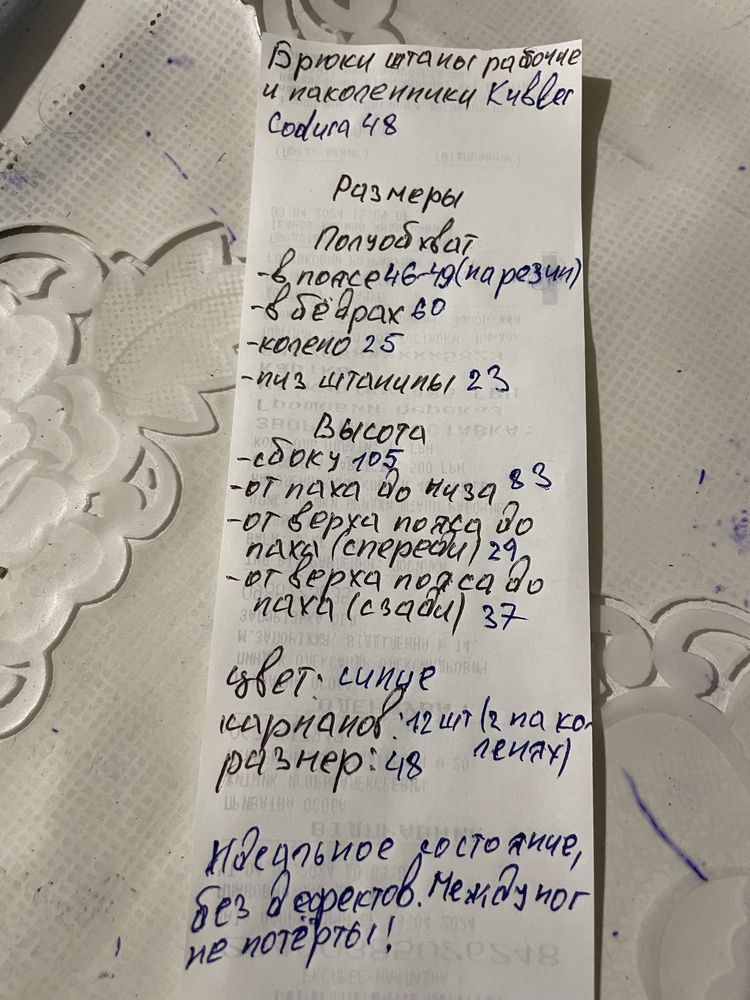 Брюки штаны рабочие
и наколенники Kubler
Codura 48
Размеры
Полуобхват
-в поясе 46-49 (на резин)
-в бёдрах 60
-колено 25
-низ штанины 23
Высота
-сбоку 105
-от паха до низа 83
-от верха пояса до
паха (спереди) 29
-от верха пояса до
паха (сзади) 37
цвет: синие
карманов: 12 шт (2 на ко-
ленях)
размер: 48
Идеальное состояние,
без дефектов. Между ног
не потёрты!